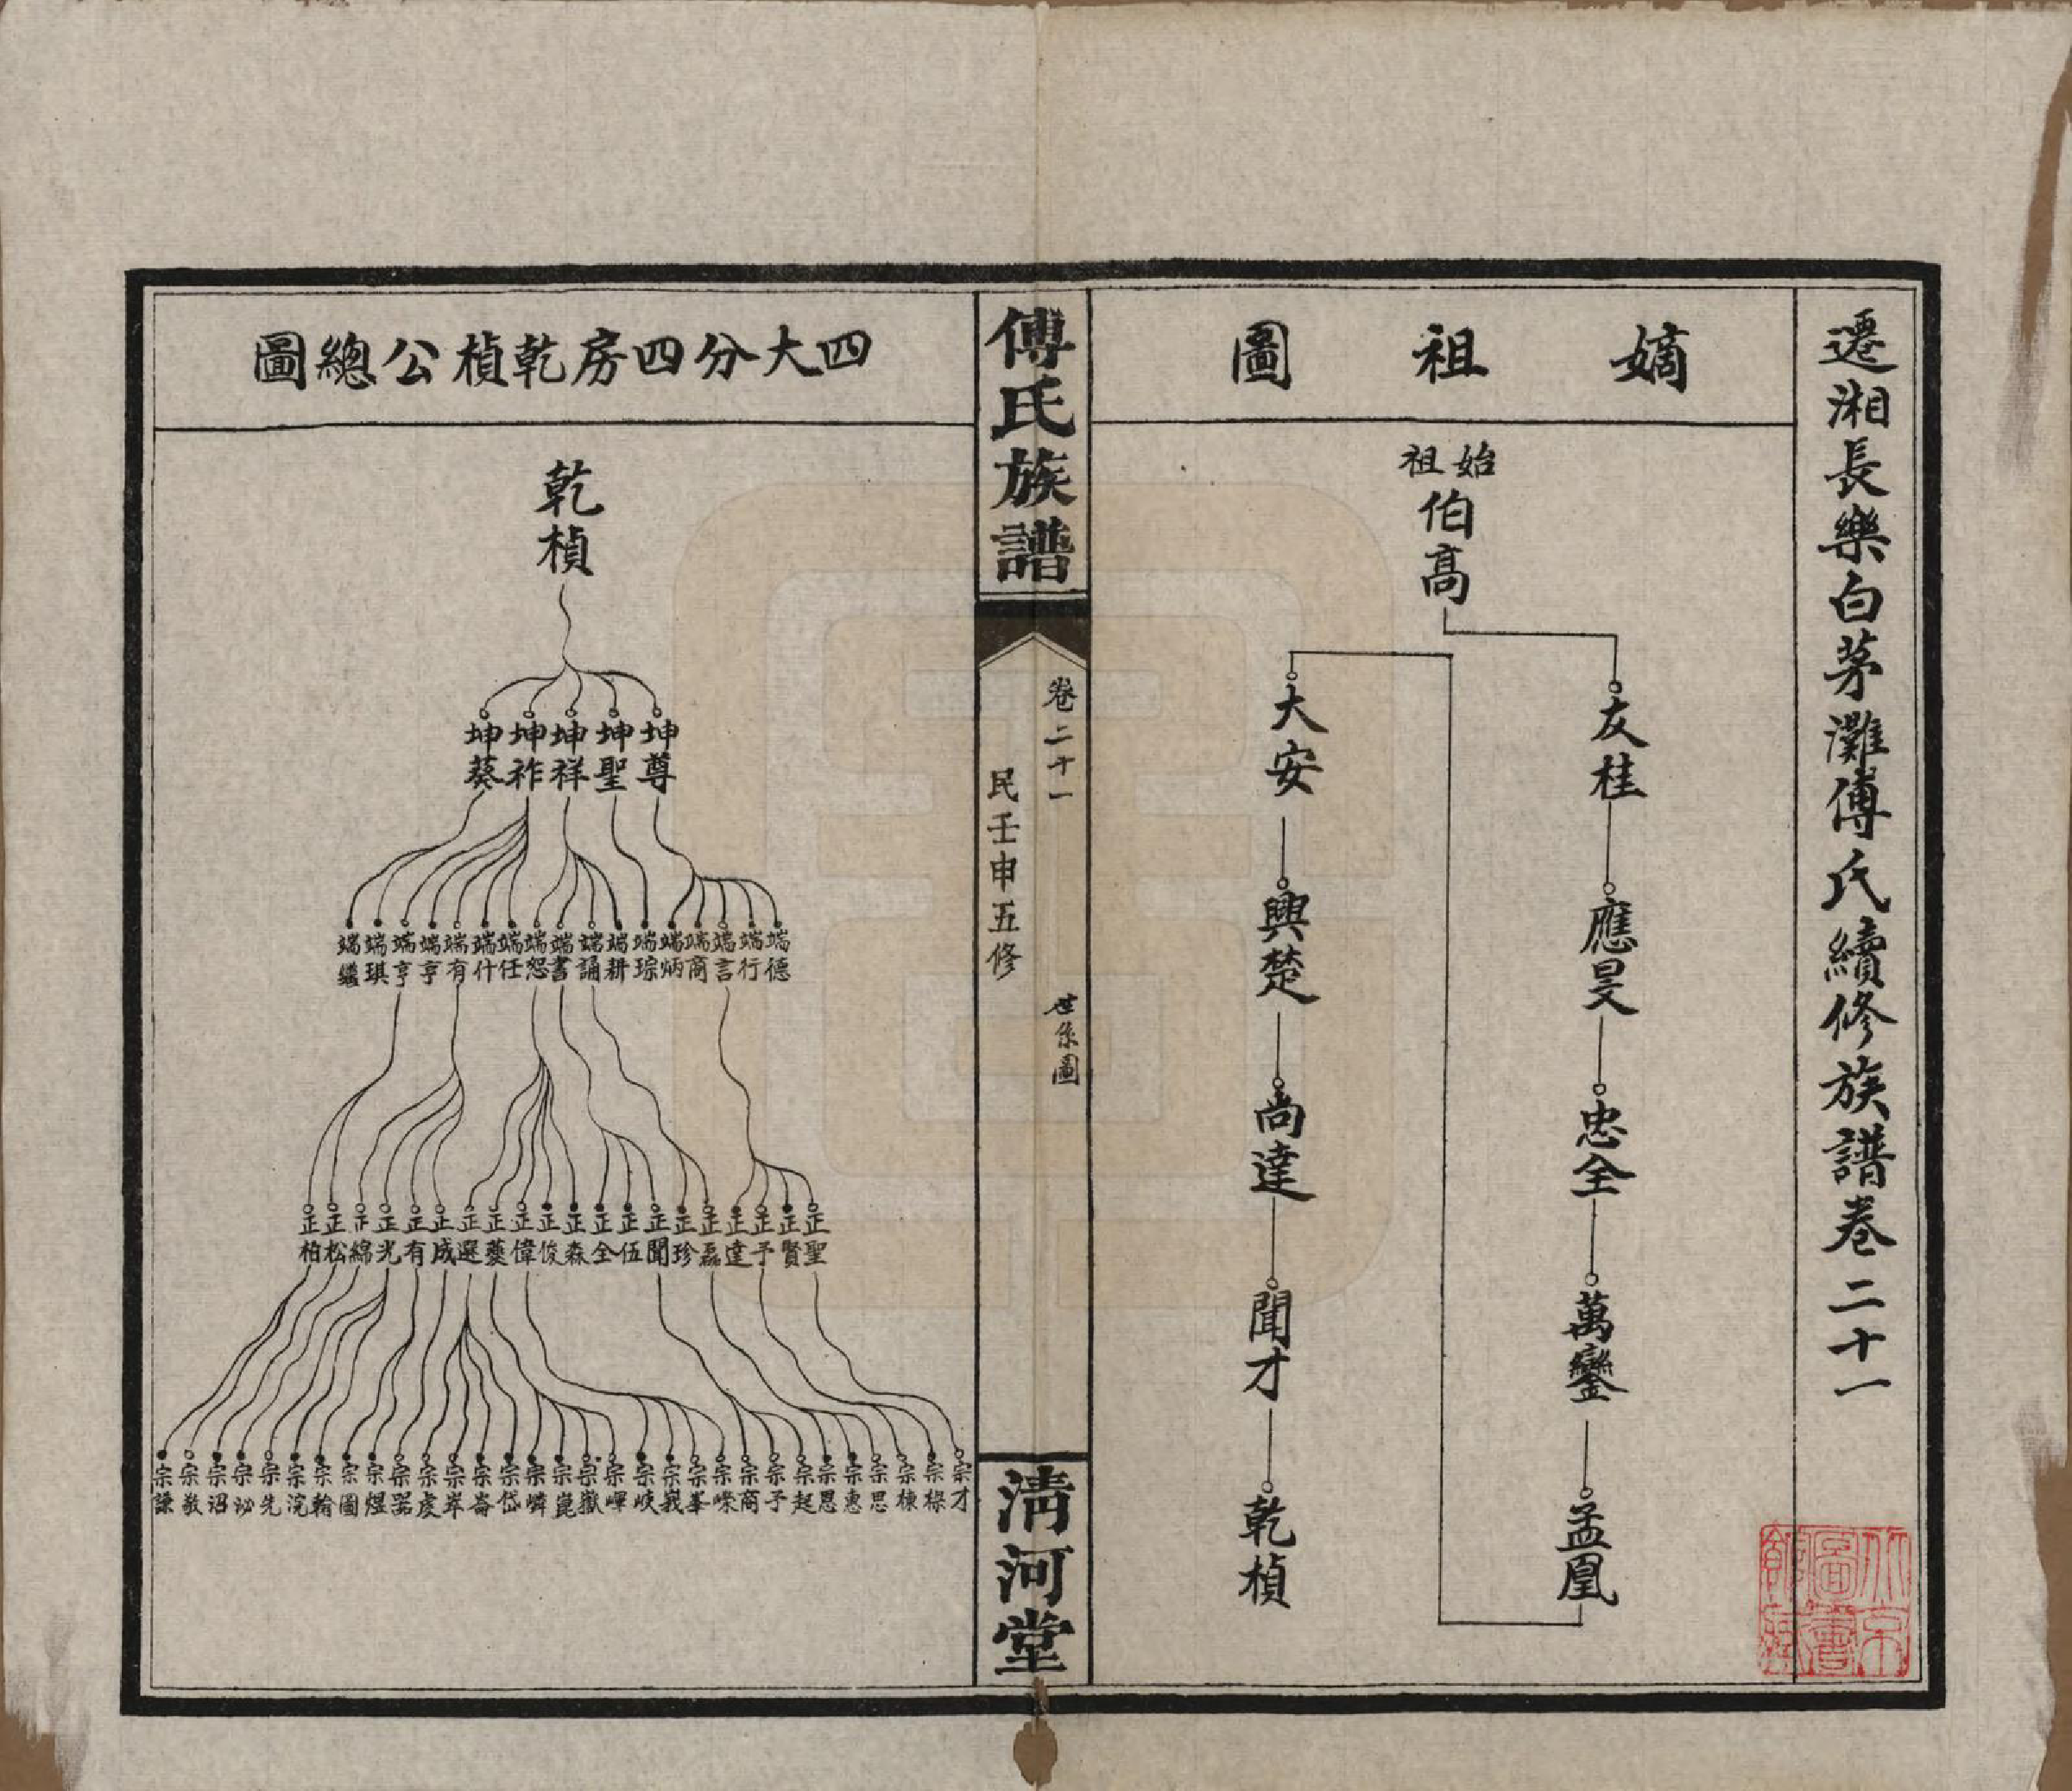 遷湘長樂白茅灘傅氏續修族譜卷二十一
嫡祖圖
始祖
伯高
友桂
應旻
忠全
萬鑾
孟凰
大安
興楚
尚達
聞才
乾楨
傅氏族譜
卷二十一
世系圖
民壬申五修
清河堂
四大分四房乾楨公總圖
乾楨
坤尊
坤聖
坤祥
坤祚
坤葵
端德
端行
端言
端商
端炳
端琮
端耕
端誦
端書
端恕
端任
端什
端有
端亨
端亨
端琪
端繼
正聖
正賢
正予
正達
正磊
正珍
正聞
正伍
正全
正森
正俊
正偉
正蘷
正選
正成
正有
正光
正綿
正松
正柏
宗才
宗椂
宗棟
宗思
宗惠
宗恩
宗起
宗予
宗商
宗嶸
宗峯
宗峩
宗峽
宗嶽
宗崑
宗嶙
宗岱
宗崙
宗岸
宗虔
宗器
宗煜
宗圖
宗翰
宗浣
宗先
宗詔
宗敬
宗謙
北京圖書館藏